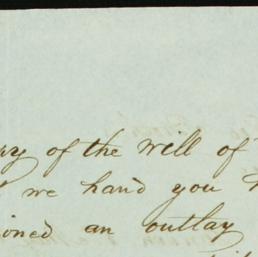 of the well of
we hand you
ioned an outlay